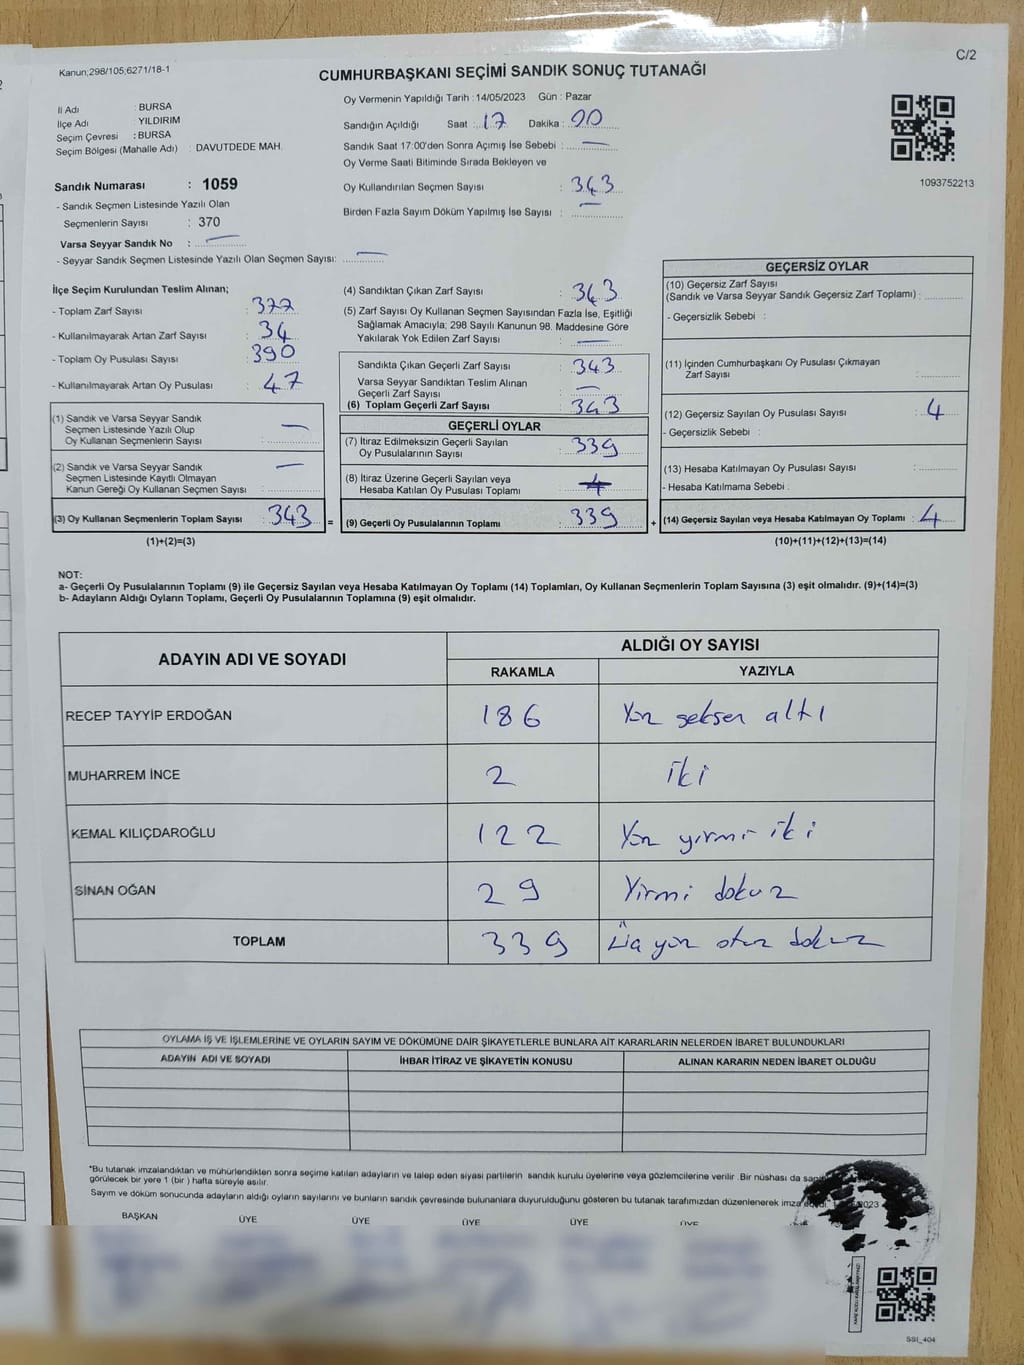 C/2
Kanun;298/105;6271/18-1
CUMHURBAŞKANI SEÇİMİ SANDIK SONUÇ TUTANAĞI
İl Adı : BURSA
İlçe Adı : YILDIRIM
Seçim Çevresi : BURSA
Seçim Bölgesi (Mahalle Adı) : DAVUTDEDE MAH.
Sandık Numarası : 1059
- Sandık Seçmen Listesinde Yazılı Olan
Seçmenlerin Sayısı : 370
Varsa Seyyar Sandık No : —
- Seyyar Sandık Seçmen Listesinde Yazılı Olan Seçmen Sayısı: —
Oy Vermenin Yapıldığı Tarih : 14/05/2023 Gün : Pazar
Sandığın Açıldığı Saat : 17 Dakika : 00
Sandık Saat 17:00'den Sonra Açımış İse Sebebi : —
Oy Verme Saati Bitiminde Sırada Bekleyen ve
Oy Kullandırılan Seçmen Sayısı : 343
Birden Fazla Sayım Döküm Yapılmış İse Sayısı : —
1093752213
İlçe Seçim Kurulundan Teslim Alınan;
- Toplam Zarf Sayısı : 377
- Kullanılmayarak Artan Zarf Sayısı : 34
- Toplam Oy Pusulası Sayısı : 390
- Kullanılmayarak Artan Oy Pusulası : 47
(1) Sandık ve Varsa Seyyar Sandık
Seçmen Listesinde Yazılı Olup
Oy Kullanan Seçmenlerin Sayısı : —
(2) Sandık ve Varsa Seyyar Sandık
Seçmen Listesinde Kayıtlı Olmayan
Kanun Gereği Oy Kullanan Seçmen Sayısı : —
(3) Oy Kullanan Seçmenlerin Toplam Sayısı : 343 =
(1)+(2)=(3)
(4) Sandıktan Çıkan Zarf Sayısı : 343
(5) Zarf Sayısı Oy Kullanan Seçmen Sayısından Fazla İse, Eşitliği
Sağlamak Amacıyla; 298 Sayılı Kanunun 98. Maddesine Göre
Yakılarak Yok Edilen Zarf Sayısı : —
Sandıkta Çıkan Geçerli Zarf Sayısı : 343
Varsa Seyyar Sandıktan Teslim Alınan
Geçerli Zarf Sayısı : —
(6) Toplam Geçerli Zarf Sayısı : 343
GEÇERLİ OYLAR
(7) İtiraz Edilmeksizin Geçerli Sayılan
Oy Pusulalarının Sayısı : 339
(8) İtiraz Üzerine Geçerli Sayılan veya
Hesaba Katılan Oy Pusulası Toplamı : 4
(9) Geçerli Oy Pusulalarının Toplamı : 339 +
GEÇERSİZ OYLAR
(10) Geçersiz Zarf Sayısı
(Sandık ve Varsa Seyyar Sandık Geçersiz Zarf Toplamı) :
- Geçersizlik Sebebi :
(11) İçinden Cumhurbaşkanı Oy Pusulası Çıkmayan
Zarf Sayısı :
(12) Geçersiz Sayılan Oy Pusulası Sayısı : 4
- Geçersizlik Sebebi :
(13) Hesaba Katılmayan Oy Pusulası Sayısı :
- Hesaba Katılmama Sebebi :
(14) Geçersiz Sayılan veya Hesaba Katılmayan Oy Toplamı : 4
(10)+(11)+(12)+(13)=(14)
NOT:
a- Geçerli Oy Pusulalarının Toplamı (9) ile Geçersiz Sayılan veya Hesaba Katılmayan Oy Toplamı (14) Toplamları, Oy Kullanan Seçmenlerin Toplam Sayısına (3) eşit olmalıdır. (9)+(14)=(3)
b- Adayların Aldığı Oyların Toplamı, Geçerli Oy Pusulalarının Toplamına (9) eşit olmalıdır.
ADAYIN ADI VE SOYADI ALDIĞI OY SAYISI
RAKAMLA YAZIYLA
RECEP TAYYİP ERDOĞAN 186 Yüz seksen altı
MUHARREM İNCE 2 iki
KEMAL KILIÇDAROĞLU 122 Yüz yirmi iki
SİNAN OĞAN 29 Yirmi dokuz
TOPLAM 339 Üç yüz otuz dokuz
OYLAMA İŞ VE İŞLEMLERİNE VE OYLARIN SAYIM VE DÖKÜMÜNE DAİR ŞİKAYETLERLE BUNLARA AİT KARARLARIN NELERDEN İBARET BULUNDUKLARI
ADAYIN ADI VE SOYADI İHBAR İTİRAZ VE ŞİKAYETİN KONUSU ALINAN KARARIN NEDEN İBARET OLDUĞU
*Bu tutanak imzalandıktan ve mühürlendikten sonra seçime katılan adayların ve talep eden siyasi partilerin sandık kurulu üyelerine veya gözlemcilerine verilir .Bir nüshası da
görülecek bir yere 1 (bir ) hafta süreyle asılır.
Sayım ve döküm sonucunda adayların aldığı oyların sayılarını ve bunların sandık çevresinde bulunanlara duyurulduğunu gösteren bu tutanak tarafımızdan düzenlenerek
BAŞKAN ÜYE ÜYE ÜYE ÜYE ÜYE
SSI_404